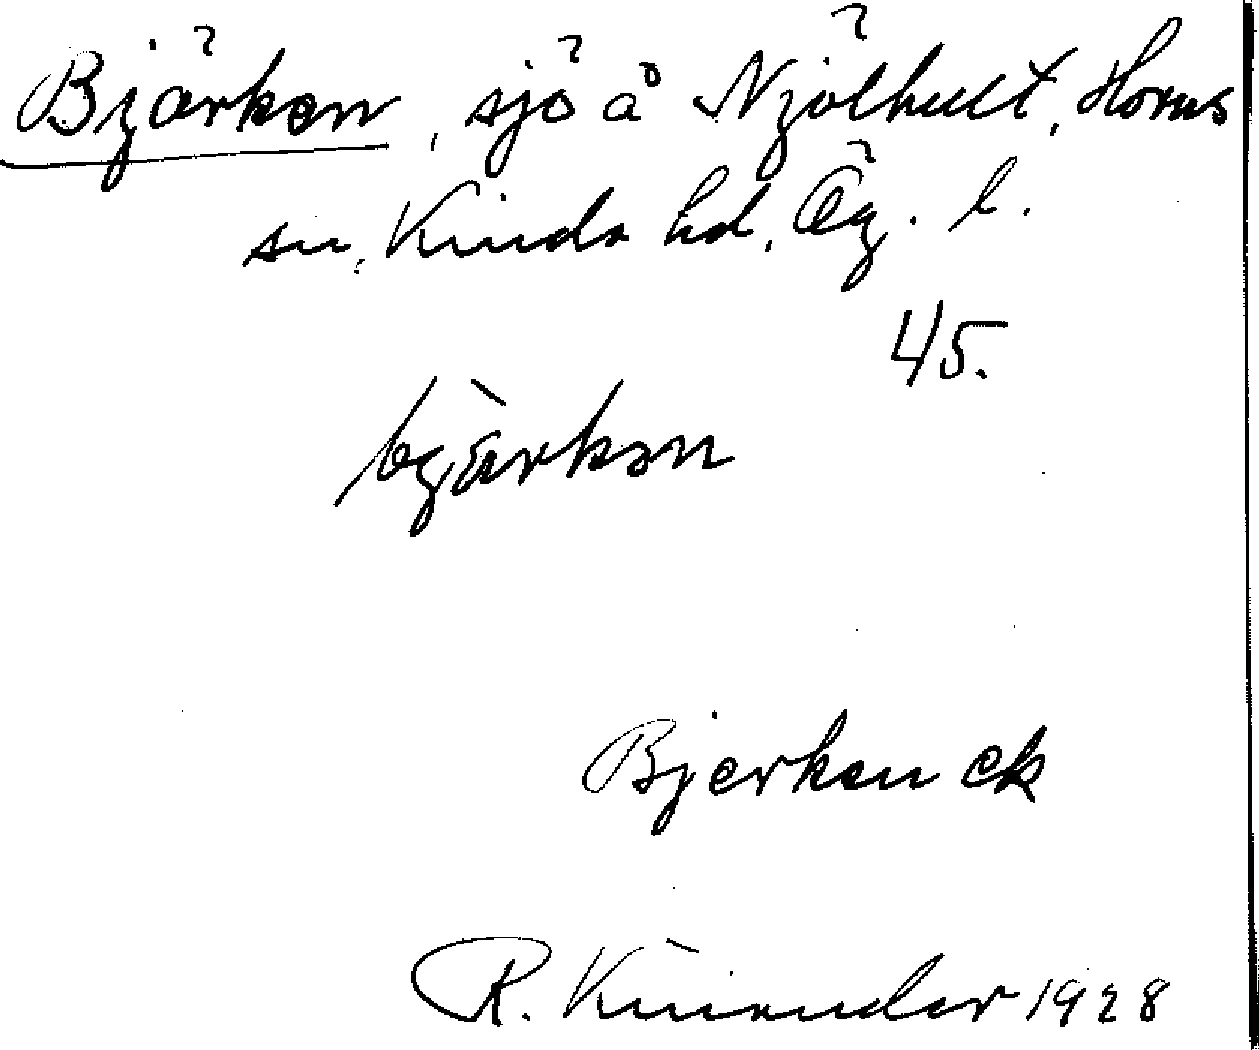 Björken, sjö å Njölhult, Horns
sn, Kinda hd, Ög. l.
45.
bjärkən
Bjerken ek
R. Kinander 1928